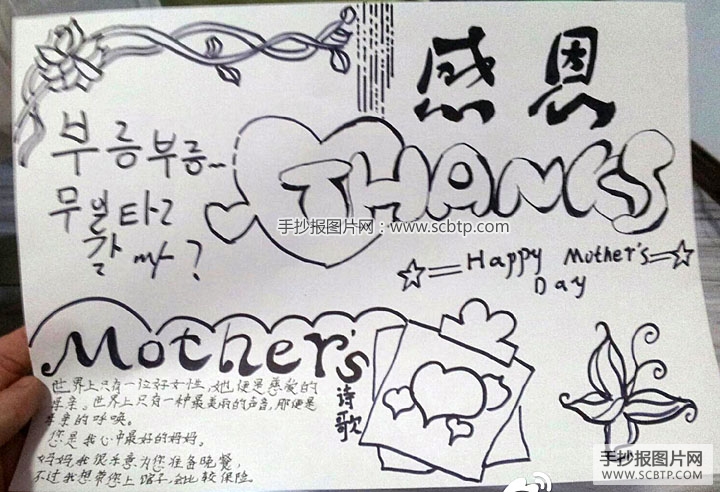 感恩
부릉부릉~
무얼 타고
갈까?
THANKS
手抄报图片网:www.scbtp.com
Happy Mother's
Day
Mother's
诗歌
世界上只有一位好女性,她便是慈爱的
母亲。世界上只有一种最美丽的声音,那便是
母亲的呼唤。
您是我心中最好的妈妈。
妈妈,我很乐意为您准备晚餐,
不过我想带您上馆子会比较保险。
手抄报图片网
WWW.SCBTP.COM